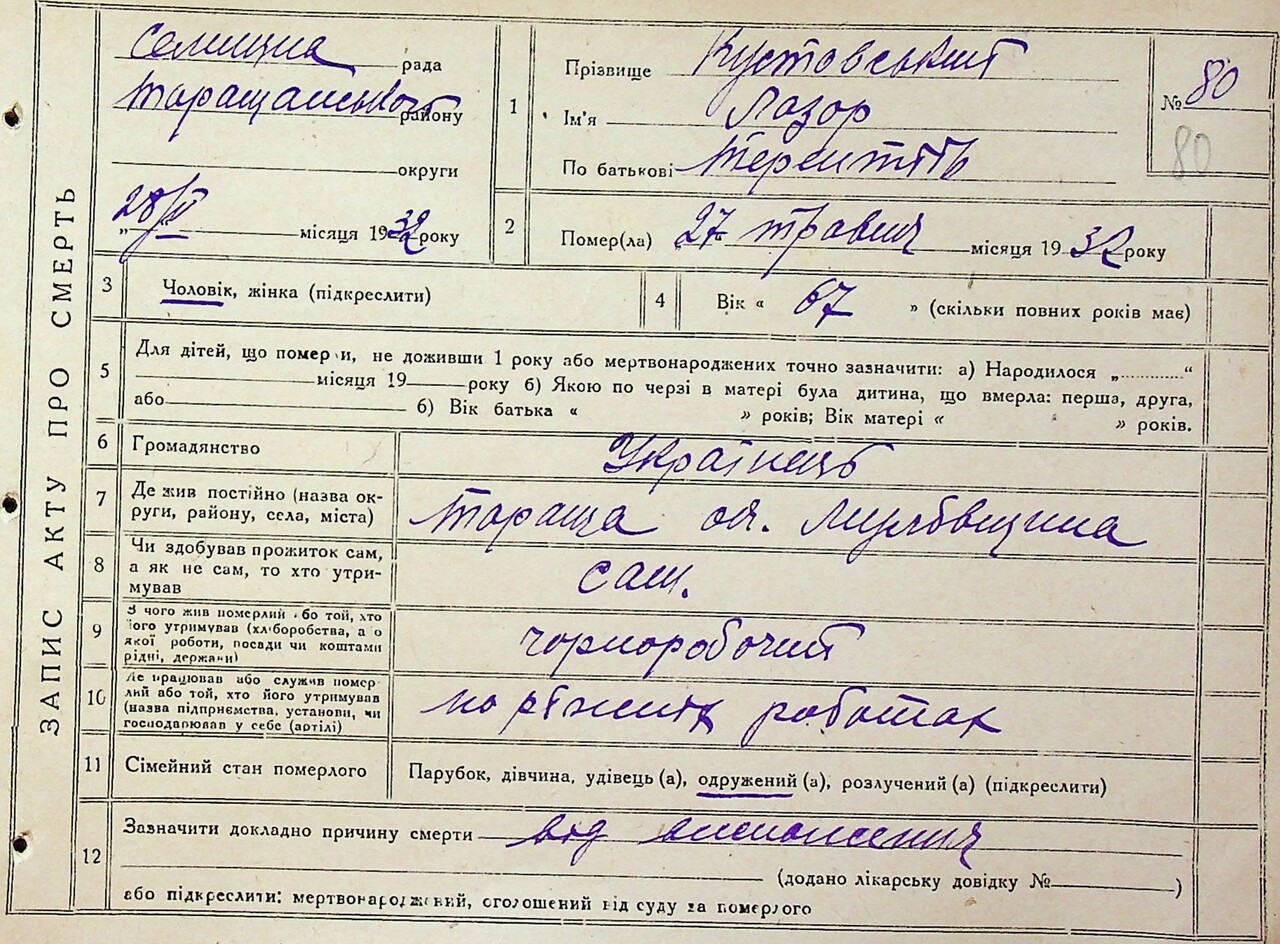 ЗАПИС АКТУ ПРО СМЕРТЬ
Селищна рада
Таращанського району
округи
28/V місяця 1932 року
1
Прізвище Кустовський
Ім'я Лазор
По батькові Терентіїв
№ 80
80
2
Помер(ла) 27 травня місяця 1932 року
3 Чоловік, жінка (підкреслити)
4 Вік « 67 » (скільки повних років має)
5
Для дітей, що померли, не доживши 1 року або мертвонароджених точно зазначити: а) Народилося „............“
місяця 19 року б) Якою по черзі в матері була дитина, що вмерла: перша, друга,
або б) Вік батька « » років; Вік матері « » років.
6 Громадянство Українець
7 Де жив постійно (назва ок-
руги, району, села, міста)
Тараща
8
Чи здобував прожиток сам,
а як не сам, то хто утри-
мував
сам.
9
З чого жив померлий або той, хто
його утримував (хліборобства, а о
якої роботи, посади чи коштами
рідні, держави)
чорноробочий
10
Де працював або служив помер-
лий або той, хто його утримував
(назва підприємства, установи, чи
господарював у себе (артілі)
на ріжних роботах
11 Сімейний стан померлого Парубок, дівчина, удівець (а), одружений (а), розлучений (а) (підкреслити)
12
Зазначити докладно причину смерти від виснаження
(додано лікарську довідку № )
або підкреслити: мертвонароджений, оголошений від суду за померлого